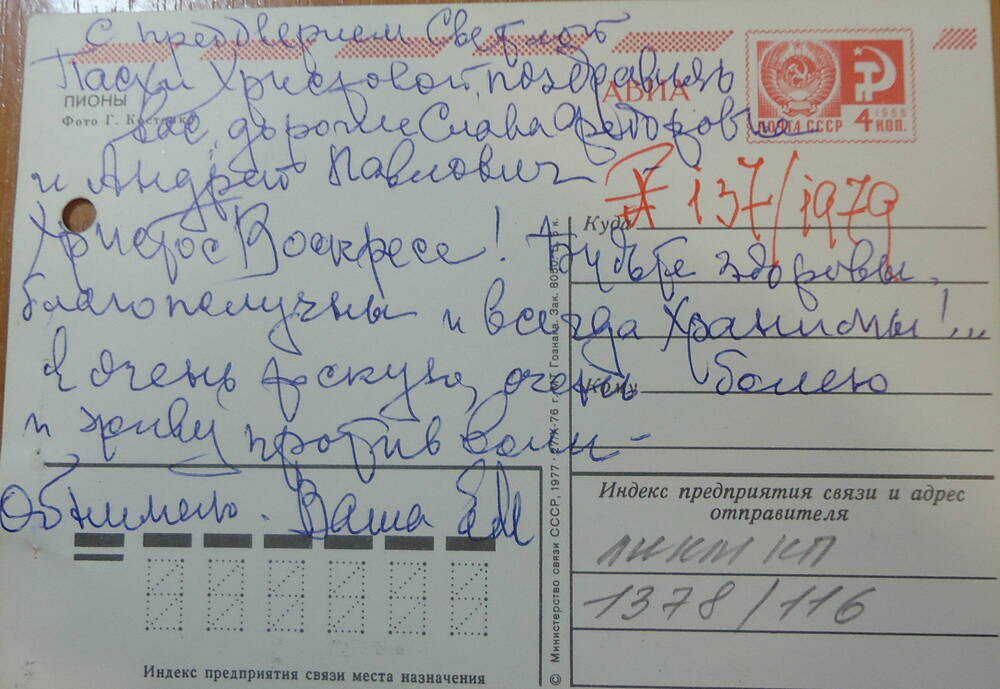 С предверием Светлой
Пасхи Христовой, поздравляю
ПИОНЫ
Фото Г. Костенко
АВИА
ПОЧТА СССР
1966
4 КОП.
вас, дорогие Слава Федоровна
и Андрей Павлович
137/1979
Куда
Христос Воскресе! Будьте здоровы,
благополучны и всегда Хранимы!...
Я очень тоскую, очень болею
Кому
и живу против воли -
Обнимаю. Ваша ЕМ
Индекс предприятия связи и адрес
отправителя
ЛИКМ КП
1378/116
Индекс предприятия связи места назначения
© Министерство связи СССР, 1977